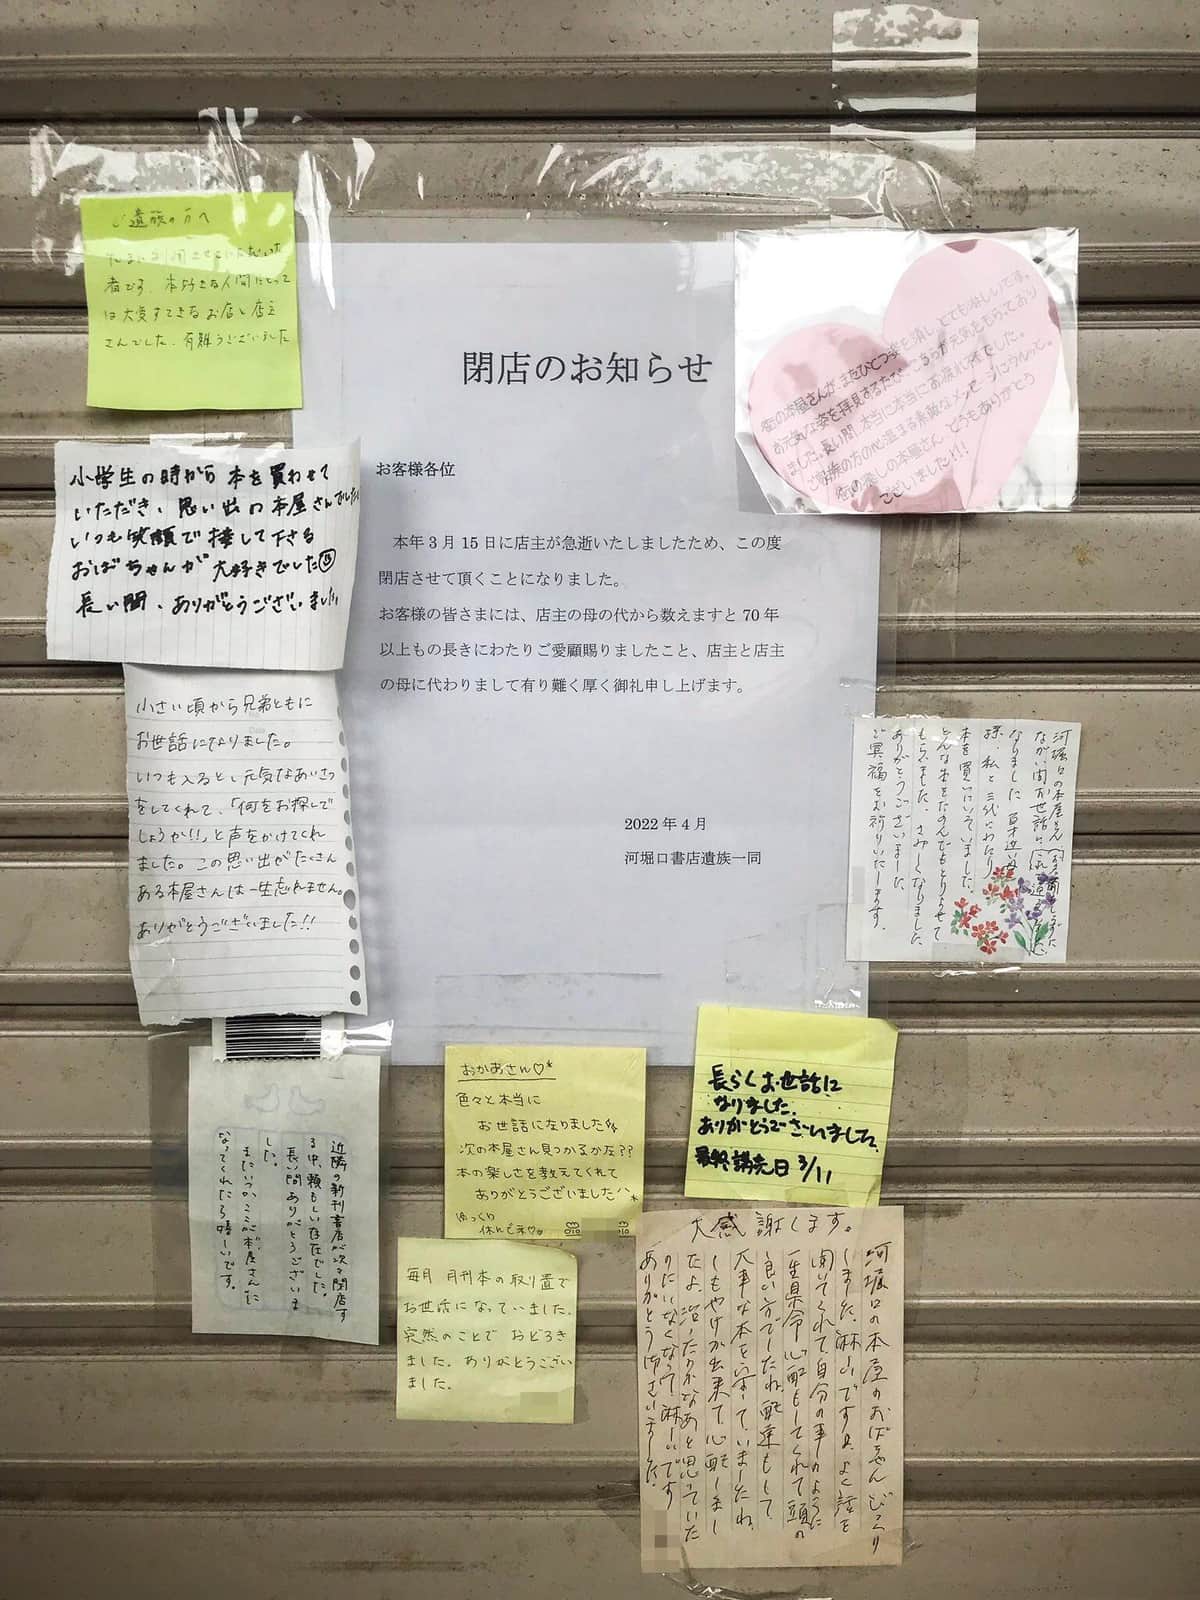 閉店のお知らせ
お客様各位
本年3月15日に店主が急逝いたしましたため、この度
閉店させて頂くことになりました。
お客様の皆さまには、店主の母の代から数えますと70年
以上もの長きにわたりご愛顧賜りましたこと、店主と店主
の母に代わりまして有り難く厚く御礼申し上げます。
2022年4月
河堀口書店遺族一同
ご遺族の方へ
たまに利用させていただいた
者です。本好きな人間にとって
は大変すてきなお店と店主
さんでした。有難うございました
小学生の時から本を買わせて
いただき、思い出の本屋さんでした
いつも笑顔で接して下さる
おばちゃんが大好きでした
長い間、ありがとうございました
小さい頃から兄弟ともに
お世話になりました。
いつも入ると、元気なあいさつ
をしてくれて、「何をお探しで
しょうか!!」と声をかけてくれ
ました。この思い出がたくさん
ある本屋さんは一生忘れません。
ありがとうございました!!
街の本屋さんが、またひとつ姿を消し、とても淋しいです。
お元気な姿を拝見するたび、こちらが元気をもらってあり
ました。長い間、本当に本当にお疲れ様でした。
ご遺族の方の心温まる素敵なメッセージにうるっと。
街の癒しの本屋さん、どうもありがとう
ございました!!
河堀口の本屋さん
ながい間お世話に
なりました
孫、私と三代にわたり
本を買いにいていました。
どんな本をたのんでもとりよせて
もらいました。さみしくなりました
ありがとうございました
ご冥福をお祈りいたします。
近隣の新刊書店が次々閉店す
る中、頼もしい存在でした。
長い間ありがとうございま
した。
またいつかここが本屋さんに
なってくれたら嬉しいです。
おかあさん♡*
色々と本当に
お世話になりました
次の本屋さん見つかるかな??
本の楽しさを教えてくれて
ありがとうございました^^*
ゆっくり
休んでネ♡。
長らくお世話に
なりました。
ありがとうございました。
最終講読日 3/11
毎月 月刊本の取り置で
お世話になっていました。
突然のことで おどろき
ました。ありがとうござい
ました。
大感謝します。
河堀口の本屋のおばちゃんびっくり
しました。淋しいですヨ、よく話を
聞いてくれて、自分の事のように
一生県命心配もしてくれて頭の
良い方でしたね。配達もして
大事な本をいすていましたね。
しもやけが出来て心配しまし
たよ。治ったかなあと思っていた
のにいなくなって淋しいです
ありがとう御ざいました。